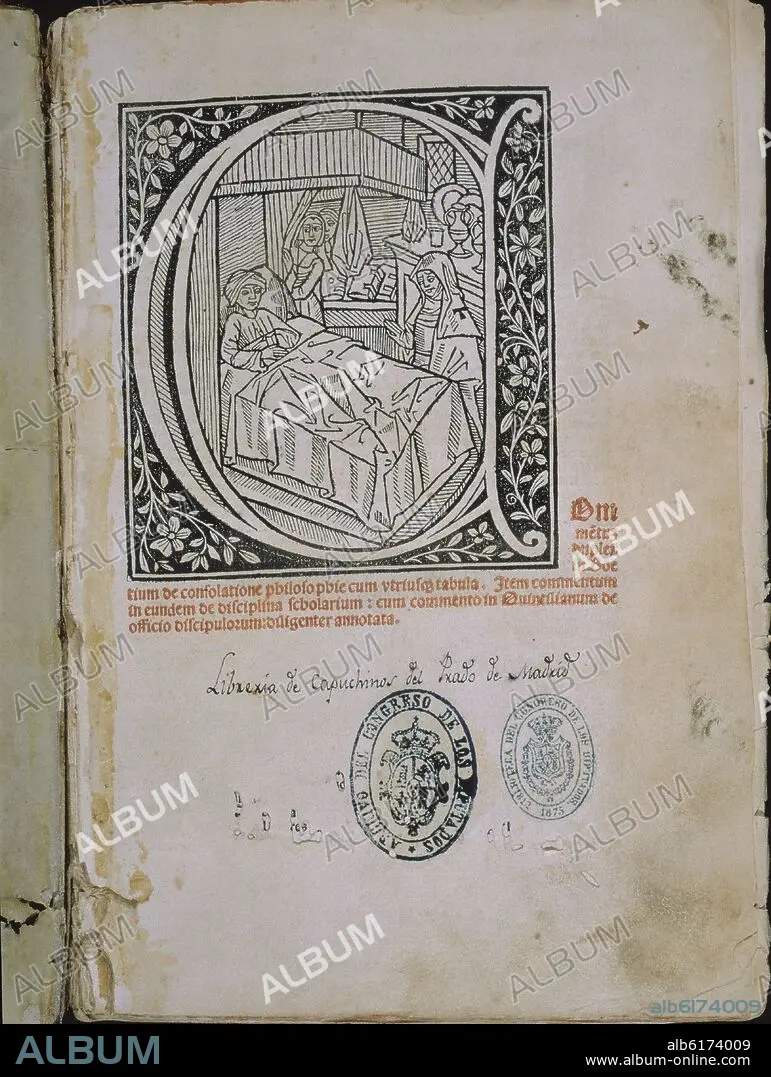 C
Om
mētū
duplex
Boe
tium de consolatione philosophie cum vtriusqꝫ tabula. Item commentum
in eundem de disciplina scholarium: cum commento in Quintilianum de
officio discipulorum: diligenter annotata.
Libreria de Capuchinos del Prado de Madrid
ARCHIVO DEL CONGRESO DE LOS DIPUTADOS
BIBLIOTECA DEL CONGRESO DE LOS DIPUTADOS
1875
ALBUM
alb6174009
ALBUM
alb6174009
www.album-online.com